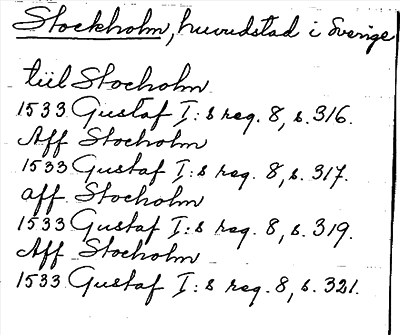 Stockholm, huvudstad i Sverige
tiil Stocholm
1533 Gustaf I:s reg. 8, s. 316.
Aff Stocholm
1533 Gustaf I:s reg. 8, s. 317.
aff Stocholm
1533 Gustaf I:s reg. 8, s. 319.
Aff Stocholm
1533 Gustaf I:s reg. 8, s. 321.